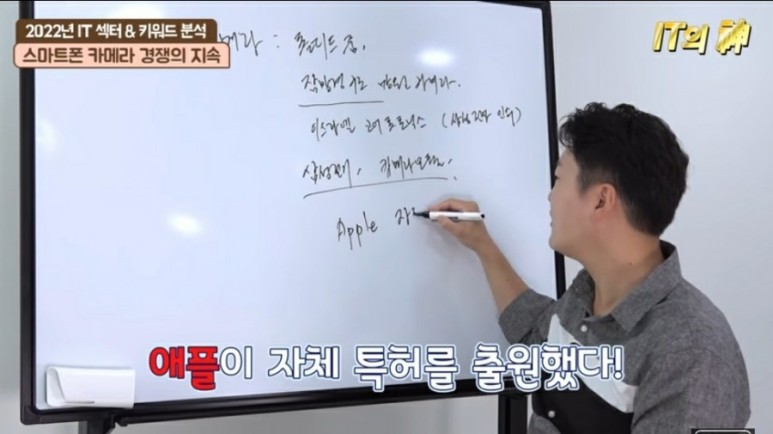 2022년 IT 섹터 & 키워드 분석
스마트폰 카메라 경쟁의 지속
IT의 神
메라 : 폴디드 줌,
잠망경 구조 망원 카메라.
이스라엘 코어포토닉스 (삼성전자 인수)
삼성전기, 카메라모듈,
Apple 자
애플이 자체 특허를 출원했다!